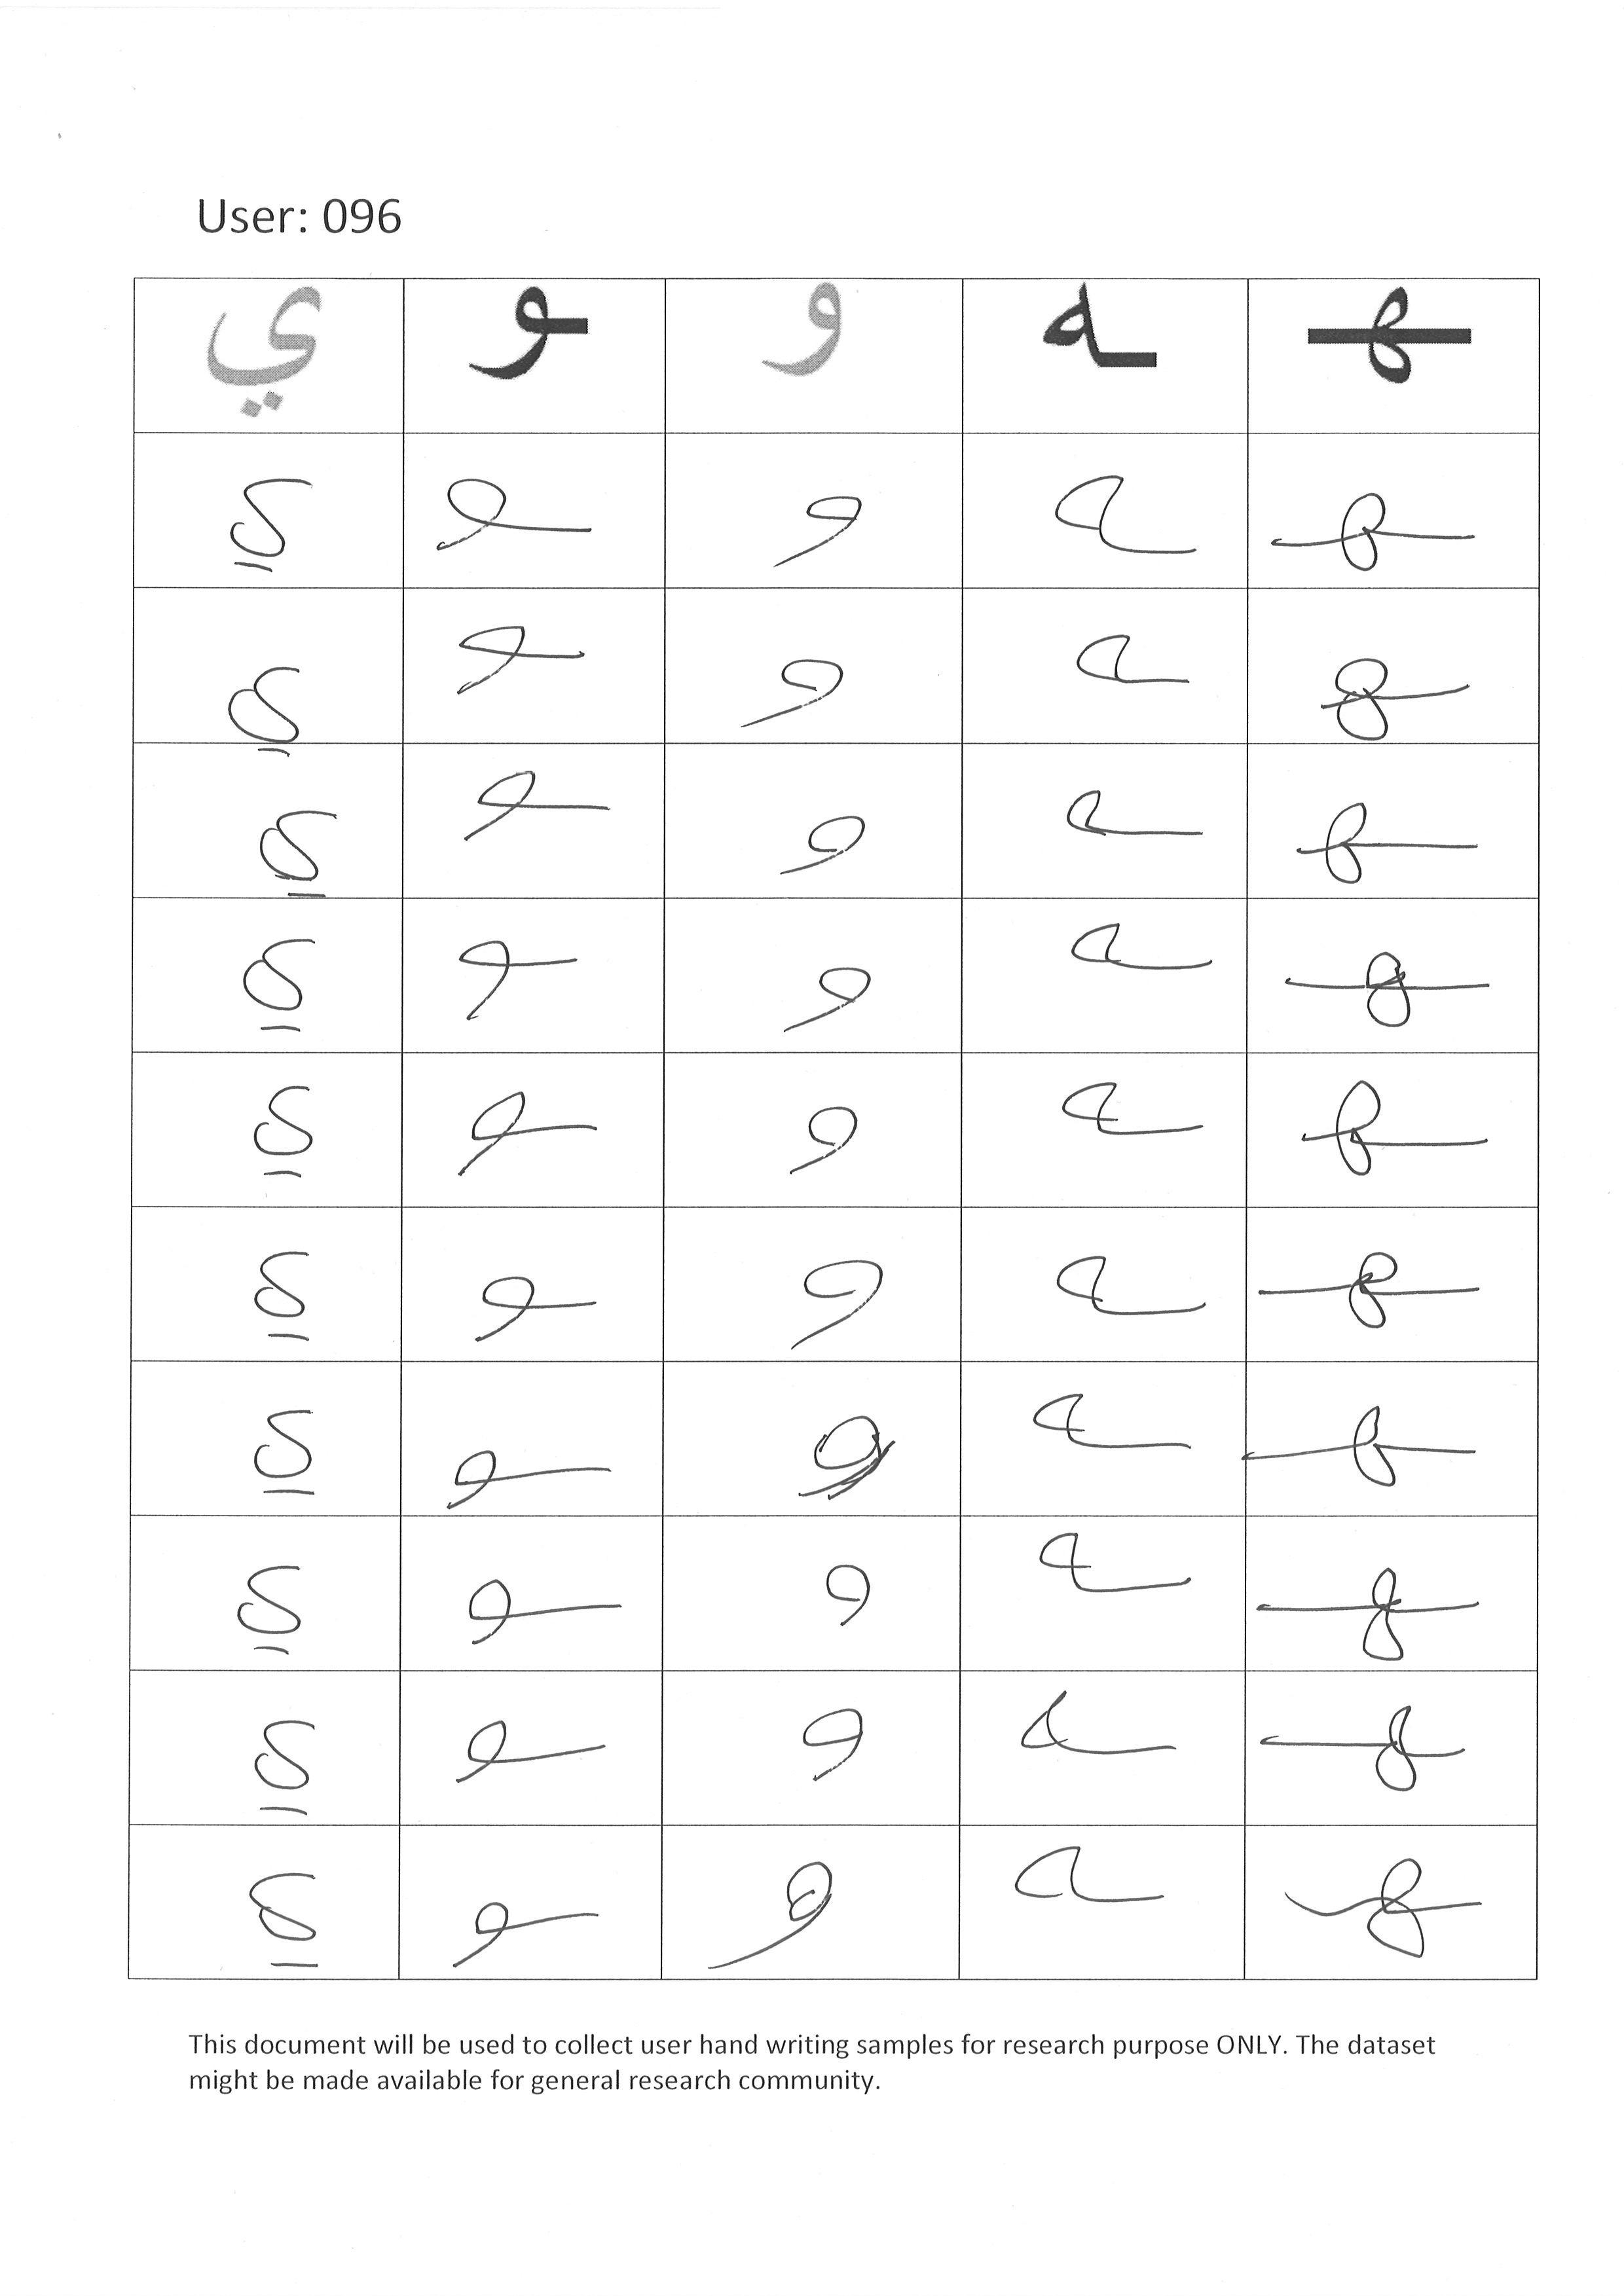 User: 096
ي ـو و ـه ـهـ
ي ـو و ـه ـهـ
ي ـو و ـه ـهـ
ي ـو و ـه ـهـ
ي ـو و ـه ـهـ
ي ـو و ـه ـهـ
ي ـو و ـه ـهـ
ي ـو و ـه ـهـ
ي ـو و ـه ـهـ
ي ـو و ـه ـهـ
ي ـو و ـه ـهـ
This document will be used to collect user hand writing samples for research purpose ONLY. The dataset
might be made available for general research community.